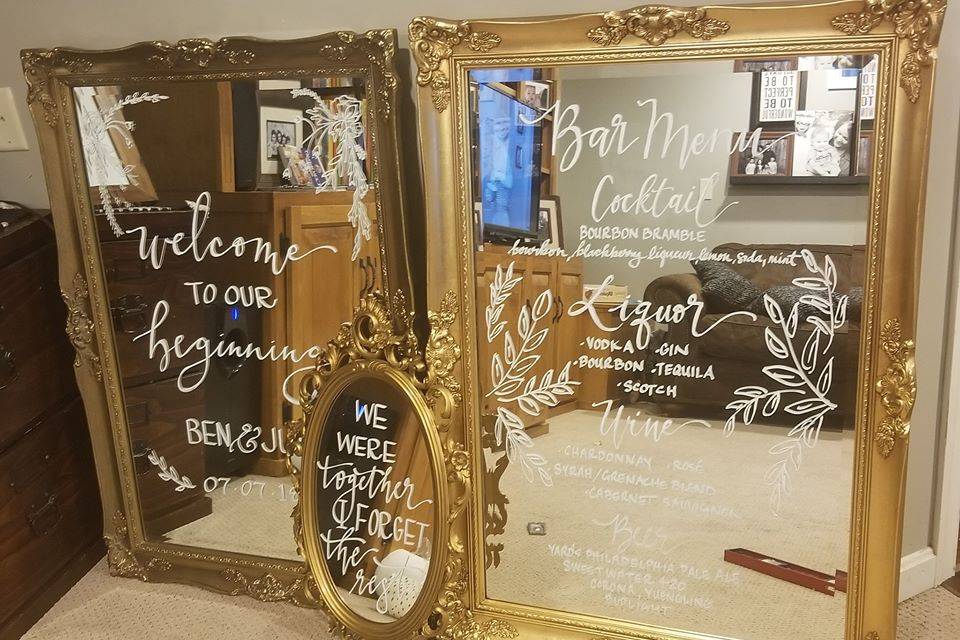 welcome
TO OUR
beginning
BEN & JU
07.07.19
WE
WERE
together
I FORGET
the
rest
Bar Menu
Cocktail
BOURBON BRAMBLE
bourbon, blackberry liqueur, lemon, soda, mint
Liquor
·VODKA ·GIN
·BOURBON ·TEQUILA
·SCOTCH
Wine
·CHARDONNAY ·ROSÉ
SYRAH/GRENACHE BLEND
·CABERNET SAUVIGNON
Beer
YARDS PHILADELPHIA PALE ALE
SWEETWATER 420
CORONA, YUENGLING
BUD LIGHT